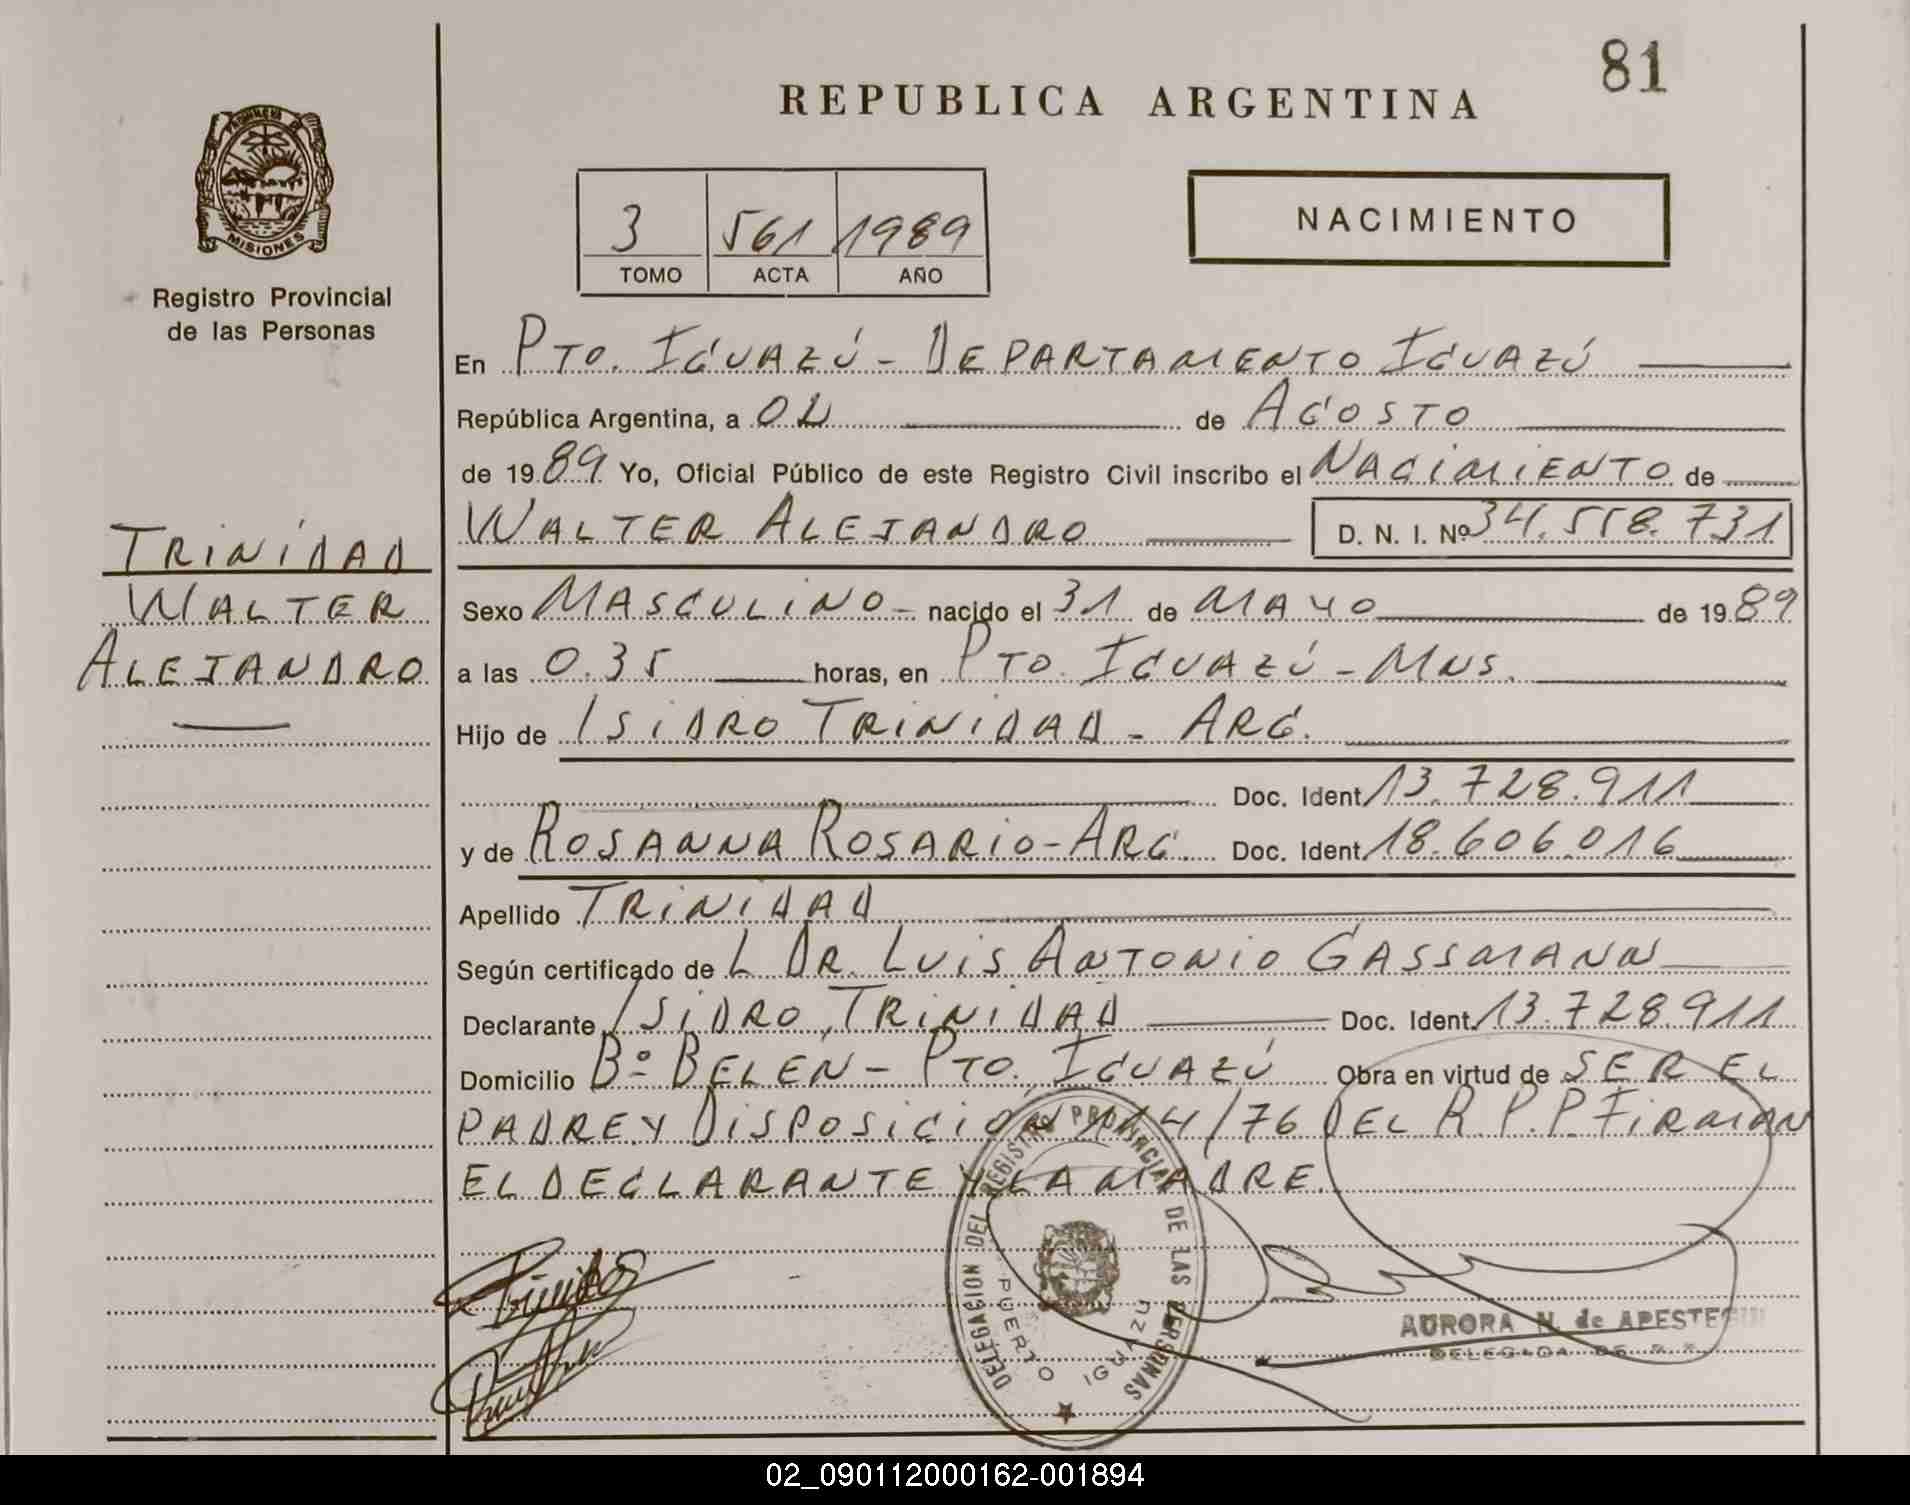 81
REPUBLICA ARGENTINA
PROVINCIA DE
MISIONES
Registro Provincial
de las Personas
3 561 1989
TOMO ACTA AÑO
NACIMIENTO
En PTO. IGUAZÚ - DEPARTAMENTO IGUAZÚ
República Argentina, a 02 de AGOSTO
de 1989 Yo, Oficial Público de este Registro Civil inscribo el NACIMIENTO de
WALTER ALEJANDRO D. N. I. Nº 34.558.731
TRINIDAD
WALTER
ALEJANDRO
Sexo MASCULINO - nacido el 31 de MAYO de 1989
a las 0.35 horas, en PTO. IGUAZÚ - MNS.
Hijo de ISIDRO TRINIDAD - ARG.
Doc. Ident. 13.728.911
y de ROSANNA ROSARIO - ARG. Doc. Ident. 18.606.016
Apellido TRINIDAD
Según certificado de L DR. LUIS ANTONIO GASSMANN
Declarante ISIDRO TRINIDAD Doc. Ident. 13.728.911
Domicilio Bº BELÉN - PTO. IGUAZÚ Obra en virtud de SER EL
PADRE Y DISPOSICIÓN 114/76 DEL R.P.P. FIRMAN
EL DECLARANTE Y LA MADRE.
DELEGACION DEL REGISTRO PROVINCIAL DE LAS PERSONAS
PUERTO IGUAZU
AURORA N. de APESTEGUI
DELEGADA DE
02_090112000162-001894